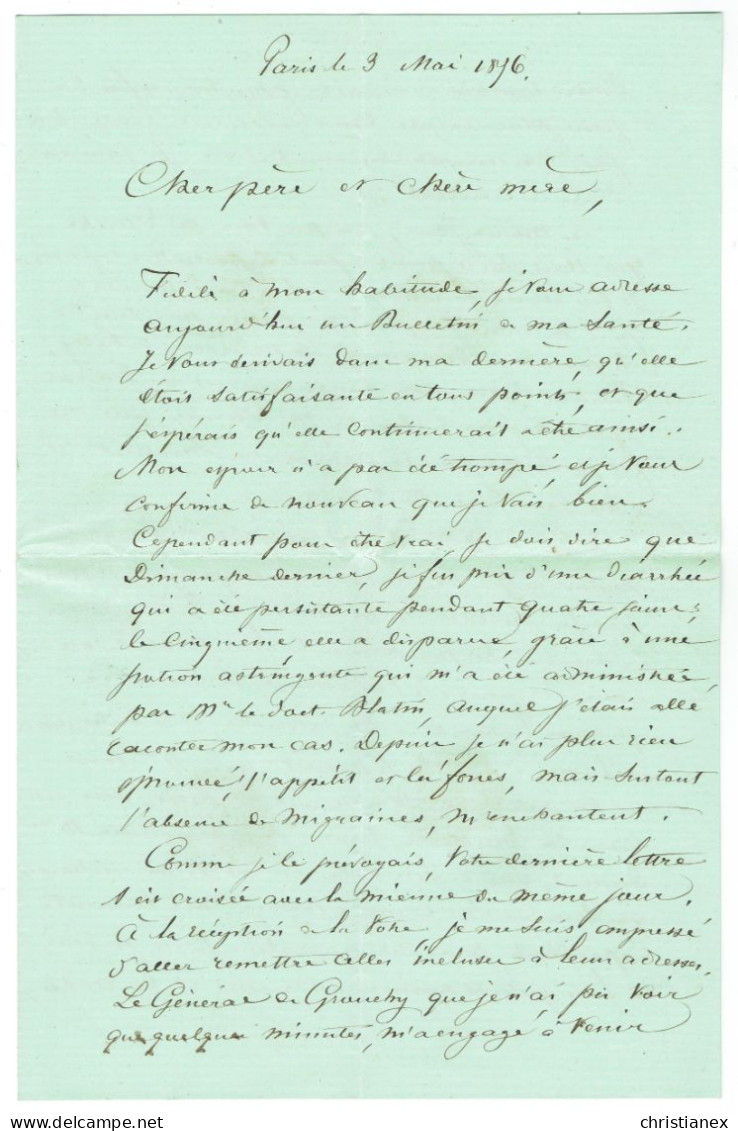 Paris le 3 Mai 1876.
Cher père et chère mère,
Fidèle à mon habitude, je vous adresse
aujourd'hui un Bulletin de ma Santé.
Je vous écrivais dans ma dernière, qu'elle
était satisfaisante en tous points, et que
j'espérais qu'elle continuerait à être ainsi.
Mon espoir n'a pas été trompé, et je vous
confirme de nouveau que je vais bien.
Cependant pour être vrai, je dois dire que
Dimanche dernier, je fus pris d'une diarrhée
qui a été persistante pendant quatre jours;
le cinquième elle a disparue, grâce à une
potion astringente qui m'a été administrée
par Mr le Doct. Blatin, auquel j'étais allé
raconter mon cas. Depuis je n'ai plus rien
éprouvé, l'appétit et les forces, mais surtout
l'absence de migraines, m'enchantent.
Comme je le prévoyais, votre dernière lettre
s'est croisée avec la mienne du même jour.
À la réception de la vôtre je me suis empressé
d'aller remettre celles incluses à leurs adresses.
Le Général de Grouchy que je n'ai pu voir
que quelques minutes, m'a engagé à venir
christianex